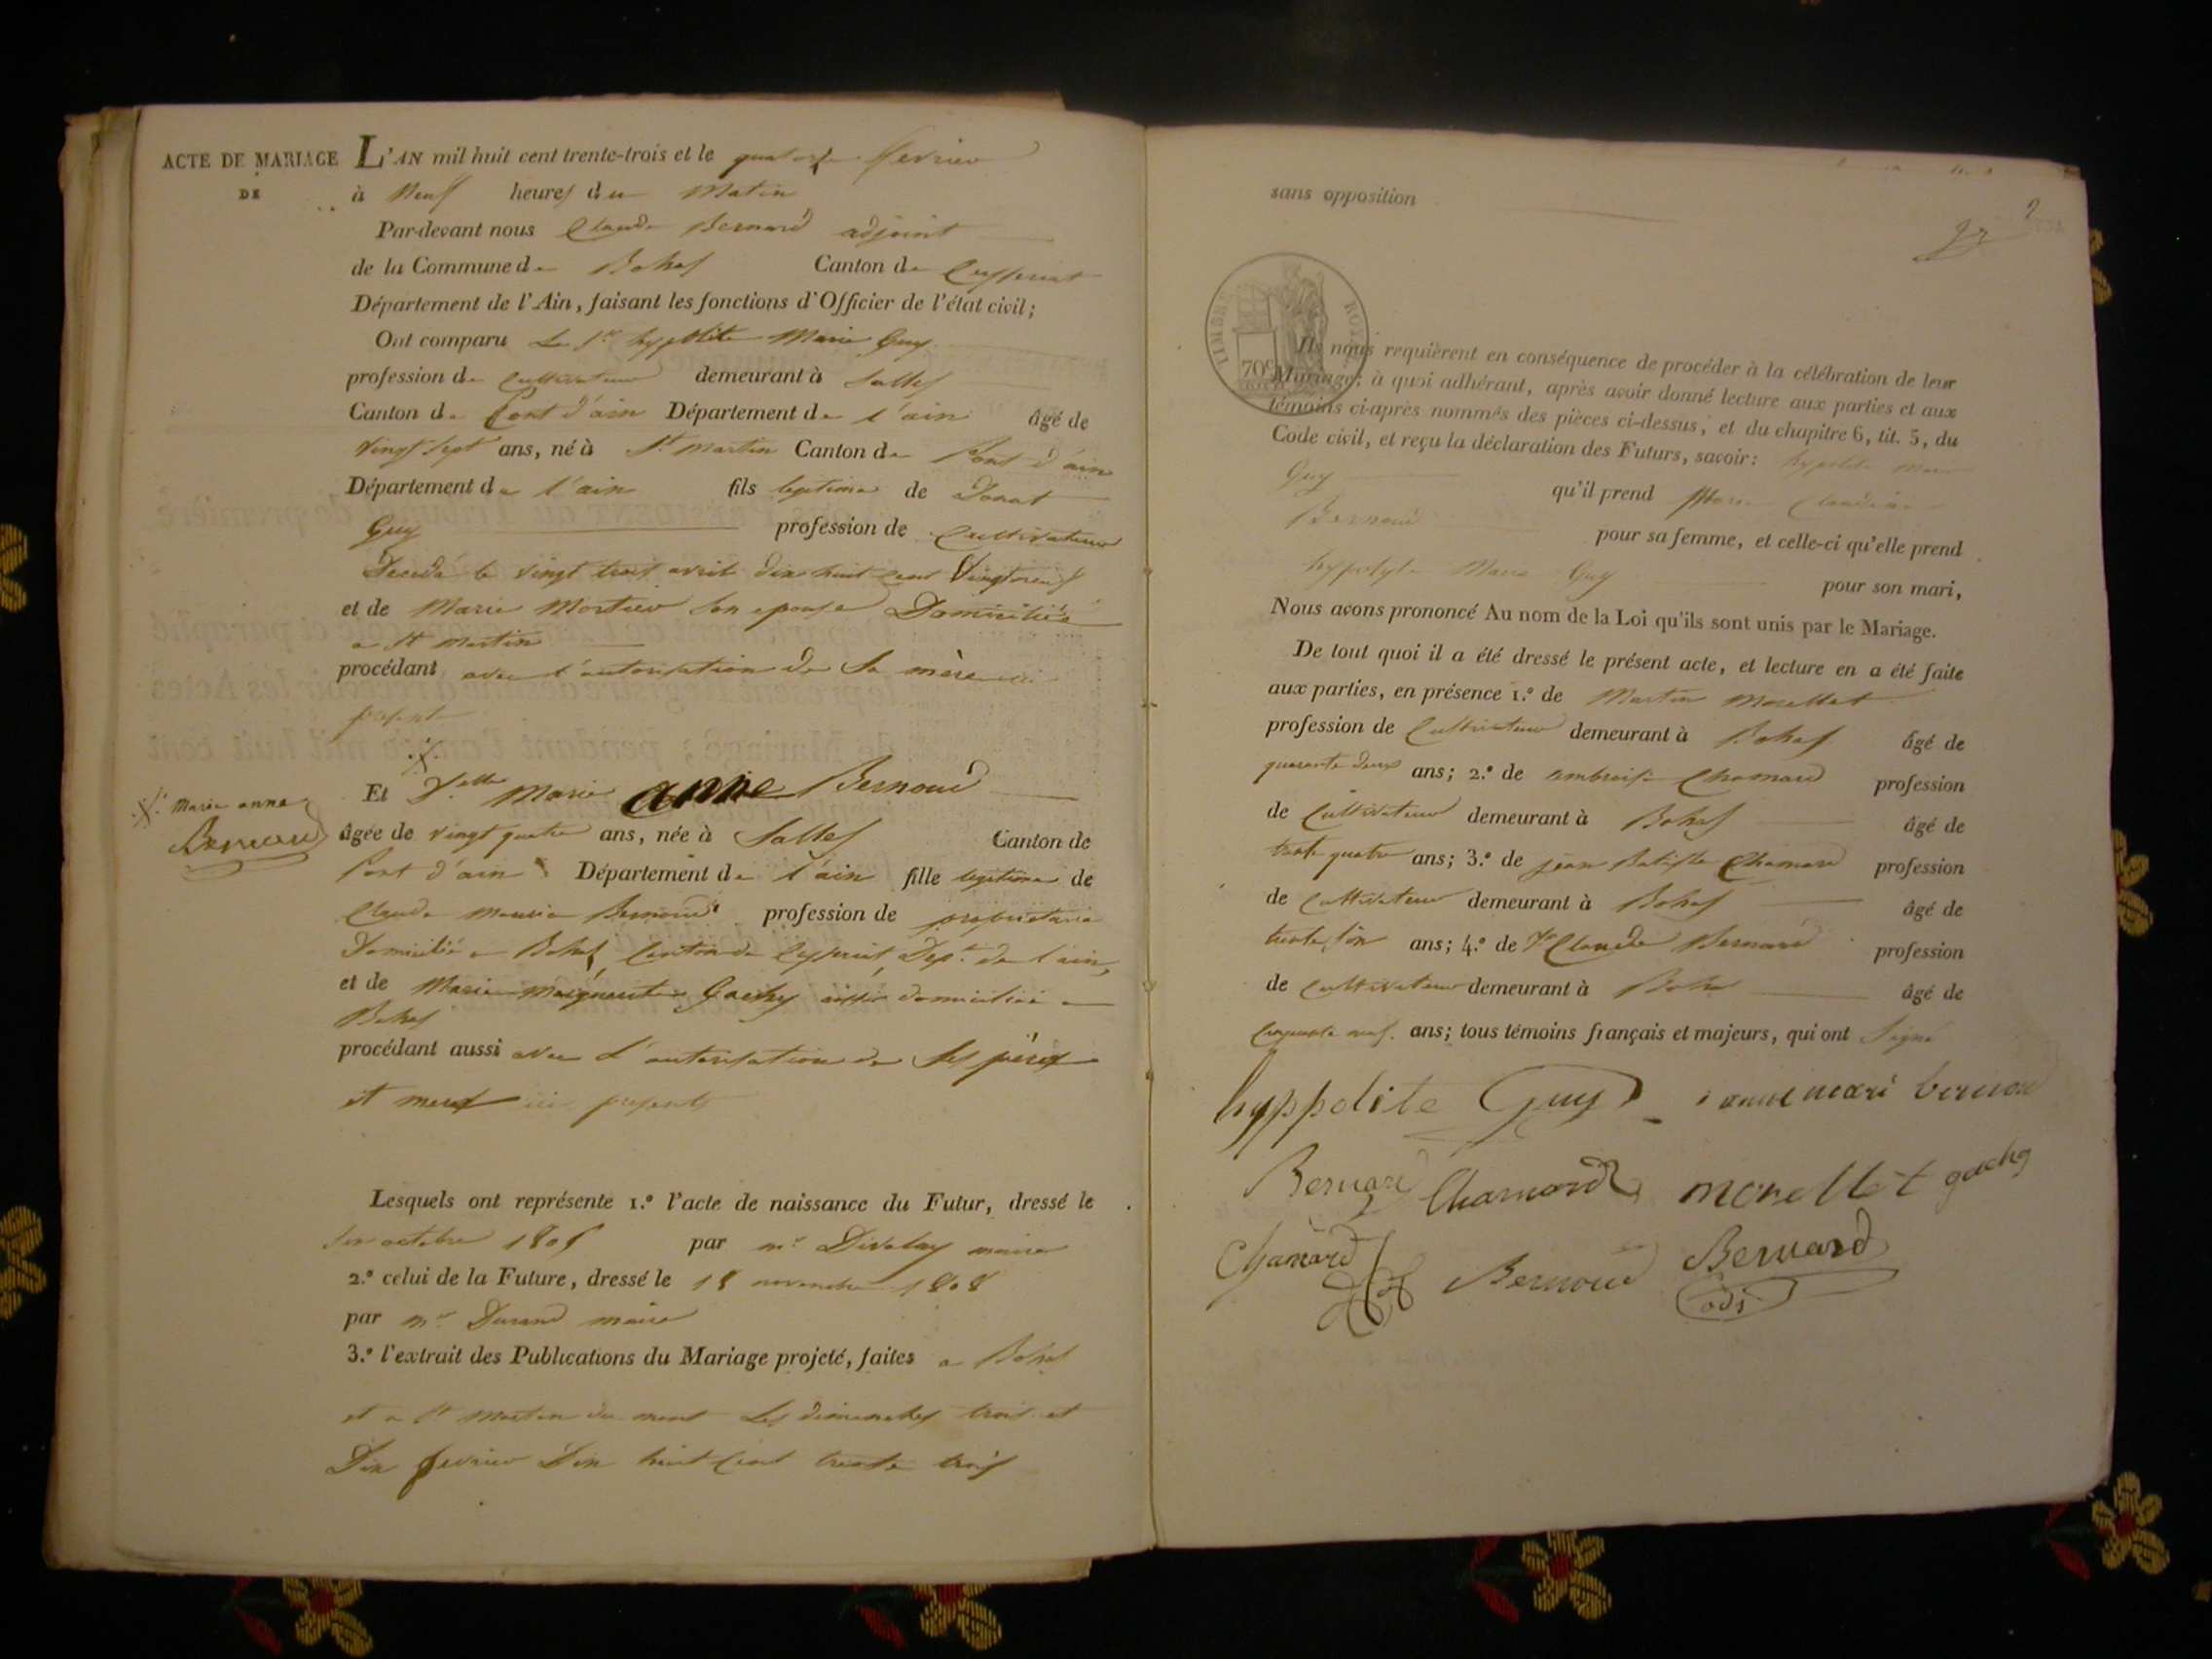 ACTE DE MARIAGE
DE
L'AN mil huit cent trente-trois et le quatorze fevrier
à Neuf heures du Matin
Par-devant nous Claude Bernard adjoint
de la Commune de Bohas Canton de Ceyseriat
Département de l'Ain, faisant les fonctions d'Officier de l'état civil;
Ont comparu Le Sr hyppolite Marie Guy
profession de Cultivateur demeurant à Salles
Canton de Pont d'ain Département de l'ain âgé de
vingt sept ans, né à St Martin Canton de Pont d'ain
Département de l'ain fils legitime de Donat
Guy profession de Cultivateur
Decedé le vingt trois avril dix huit cent
et de Marie Mortier son epouse Domiciliée
a St Martin
procédant avec l'autorisation de Sa mère ici
presente
Et Delle Marie anne Bernoud
Marie anne
Bernard
âgée de vingt quatre ans, née à Salles Canton de
Pont d'ain Département de l'ain fille legitime de
Claude Marie Bernoud profession de proprietaire
Domicilié a Bohas, Canton de Ceyseriat, Dept. de l'ain,
et de Marie Marguerite Gachy aussi domiciliée a
Bohas
procédant aussi avec l'autorisation de Ses père
et mere ici presents
Lesquels ont représenté 1.º l'acte de naissance du Futur, dressé le
octobre par mr maire
2.º celui de la Future, dressé le 18 novembre 1808
par mr Durand maire
3.º l'extrait des Publications du Mariage projeté, faites a Bohas
et a St Martin du mont Les dimanches trois et
Dix fevrier Dix huit Cent trente trois
sans opposition
2
TIMBRE ROYAL
70c
Ils nous requièrent en conséquence de procéder à la célébration de leur
Mariage; à quoi adhérant, après avoir donné lecture aux parties et aux
témoins ci-après nommés des pièces ci-dessus, et du chapitre 6, tit. 5, du
Code civil, et reçu la déclaration des Futurs, savoir: hypolite Marie
Guy qu'il prend Marie
Bernoud pour sa femme, et celle-ci qu'elle prend
hyppolyte Marie Guy pour son mari,
Nous avons prononcé Au nom de la Loi qu'ils sont unis par le Mariage.
De tout quoi il a été dressé le présent acte, et lecture en a été faite
aux parties, en présence 1.º de Martin Morellet
profession de Cultivateur demeurant à Bohas âgé de
quarante deux ans; 2.º de ambroise Chamard profession
de Cultivateur demeurant à Bohas âgé de
trente quatre ans; 3.º de jean Batiste Chamard profession
de Cultivateur demeurant à Bohas âgé de
trente six ans; 4.º de Claude Bernard profession
de Cultivateur demeurant à Bohas âgé de
Cinquante neuf ans; tous témoins français et majeurs, qui ont Signé
hyppolite Guy anne mari bernoud
Bernard Chamard morellet gachy
Chamard Bernoud Bernard
adj